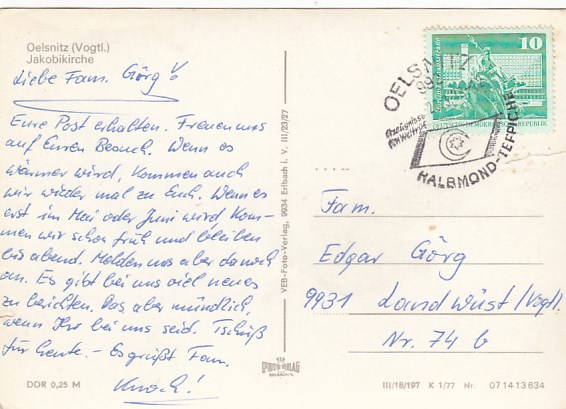 Oelsnitz (Vogtl.)
Jakobikirche
Liebe Fam. Görg!
Eure Post erhalten. Freuen uns
auf Euren Besuch. Wenn es
wärmer wird, kommen auch
wir wieder mal zu Euch. Wenn es
erst im Mai oder Juni wird kom-
men wir schon früh und bleiben
bis abend. Melden uns aber danach
an. Es gibt bei uns viel neues
zu berichten. Das aber mündlich,
wenn Ihr bei uns seid. Tschüß
für heute. - Es grüßt Fam.
Knoch!
DDR 0,25 M
VEB-Foto-Verlag, 9934 Erlbach i. V. III/23/27
10
DEUTSCHE DEMOKRATISCHE REPUBLIK
OELSNITZ
HALBMOND-TEPPICHE
Fam.
Edgar Görg
9931 Landwüst/Vogtl.
Nr. 74 b
III/18/197 K 1/77 Nr. 07 14 13 634